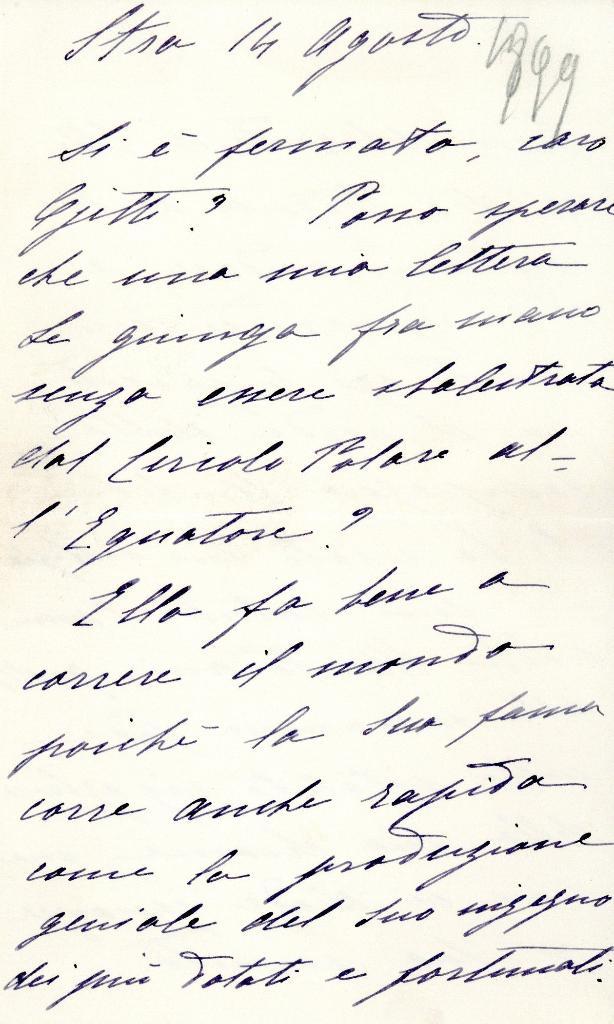 Stra 14 Agosto.
1899
Si è fermato, caro
Gjitti? Posso sperare
che una mia lettera
Le giunga fra mano
senza essere sbalestrata
dal Circolo Polare al=
l'Equatore?
Ella fa bene a
correre il mondo
poichè la Sua fama
corre anche rapida
come la produzione
geniale del Suo ingegno
dei più dotati e fortunati.